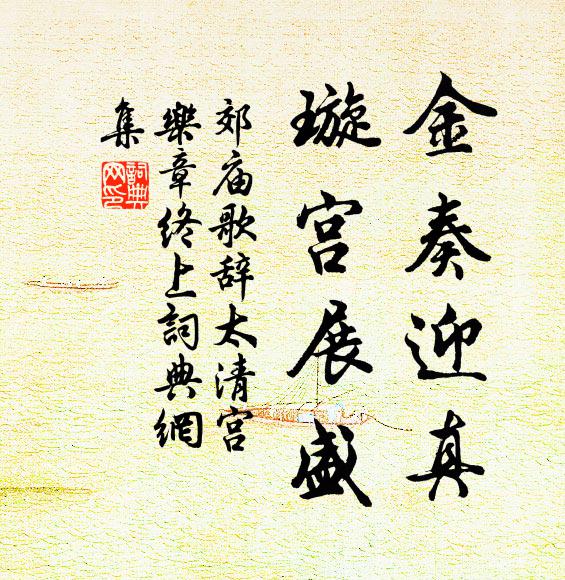 金奏迎真
璇宫展盛
郊庙歌辞太清宫
樂章终上詞典網
集
詞典
网印